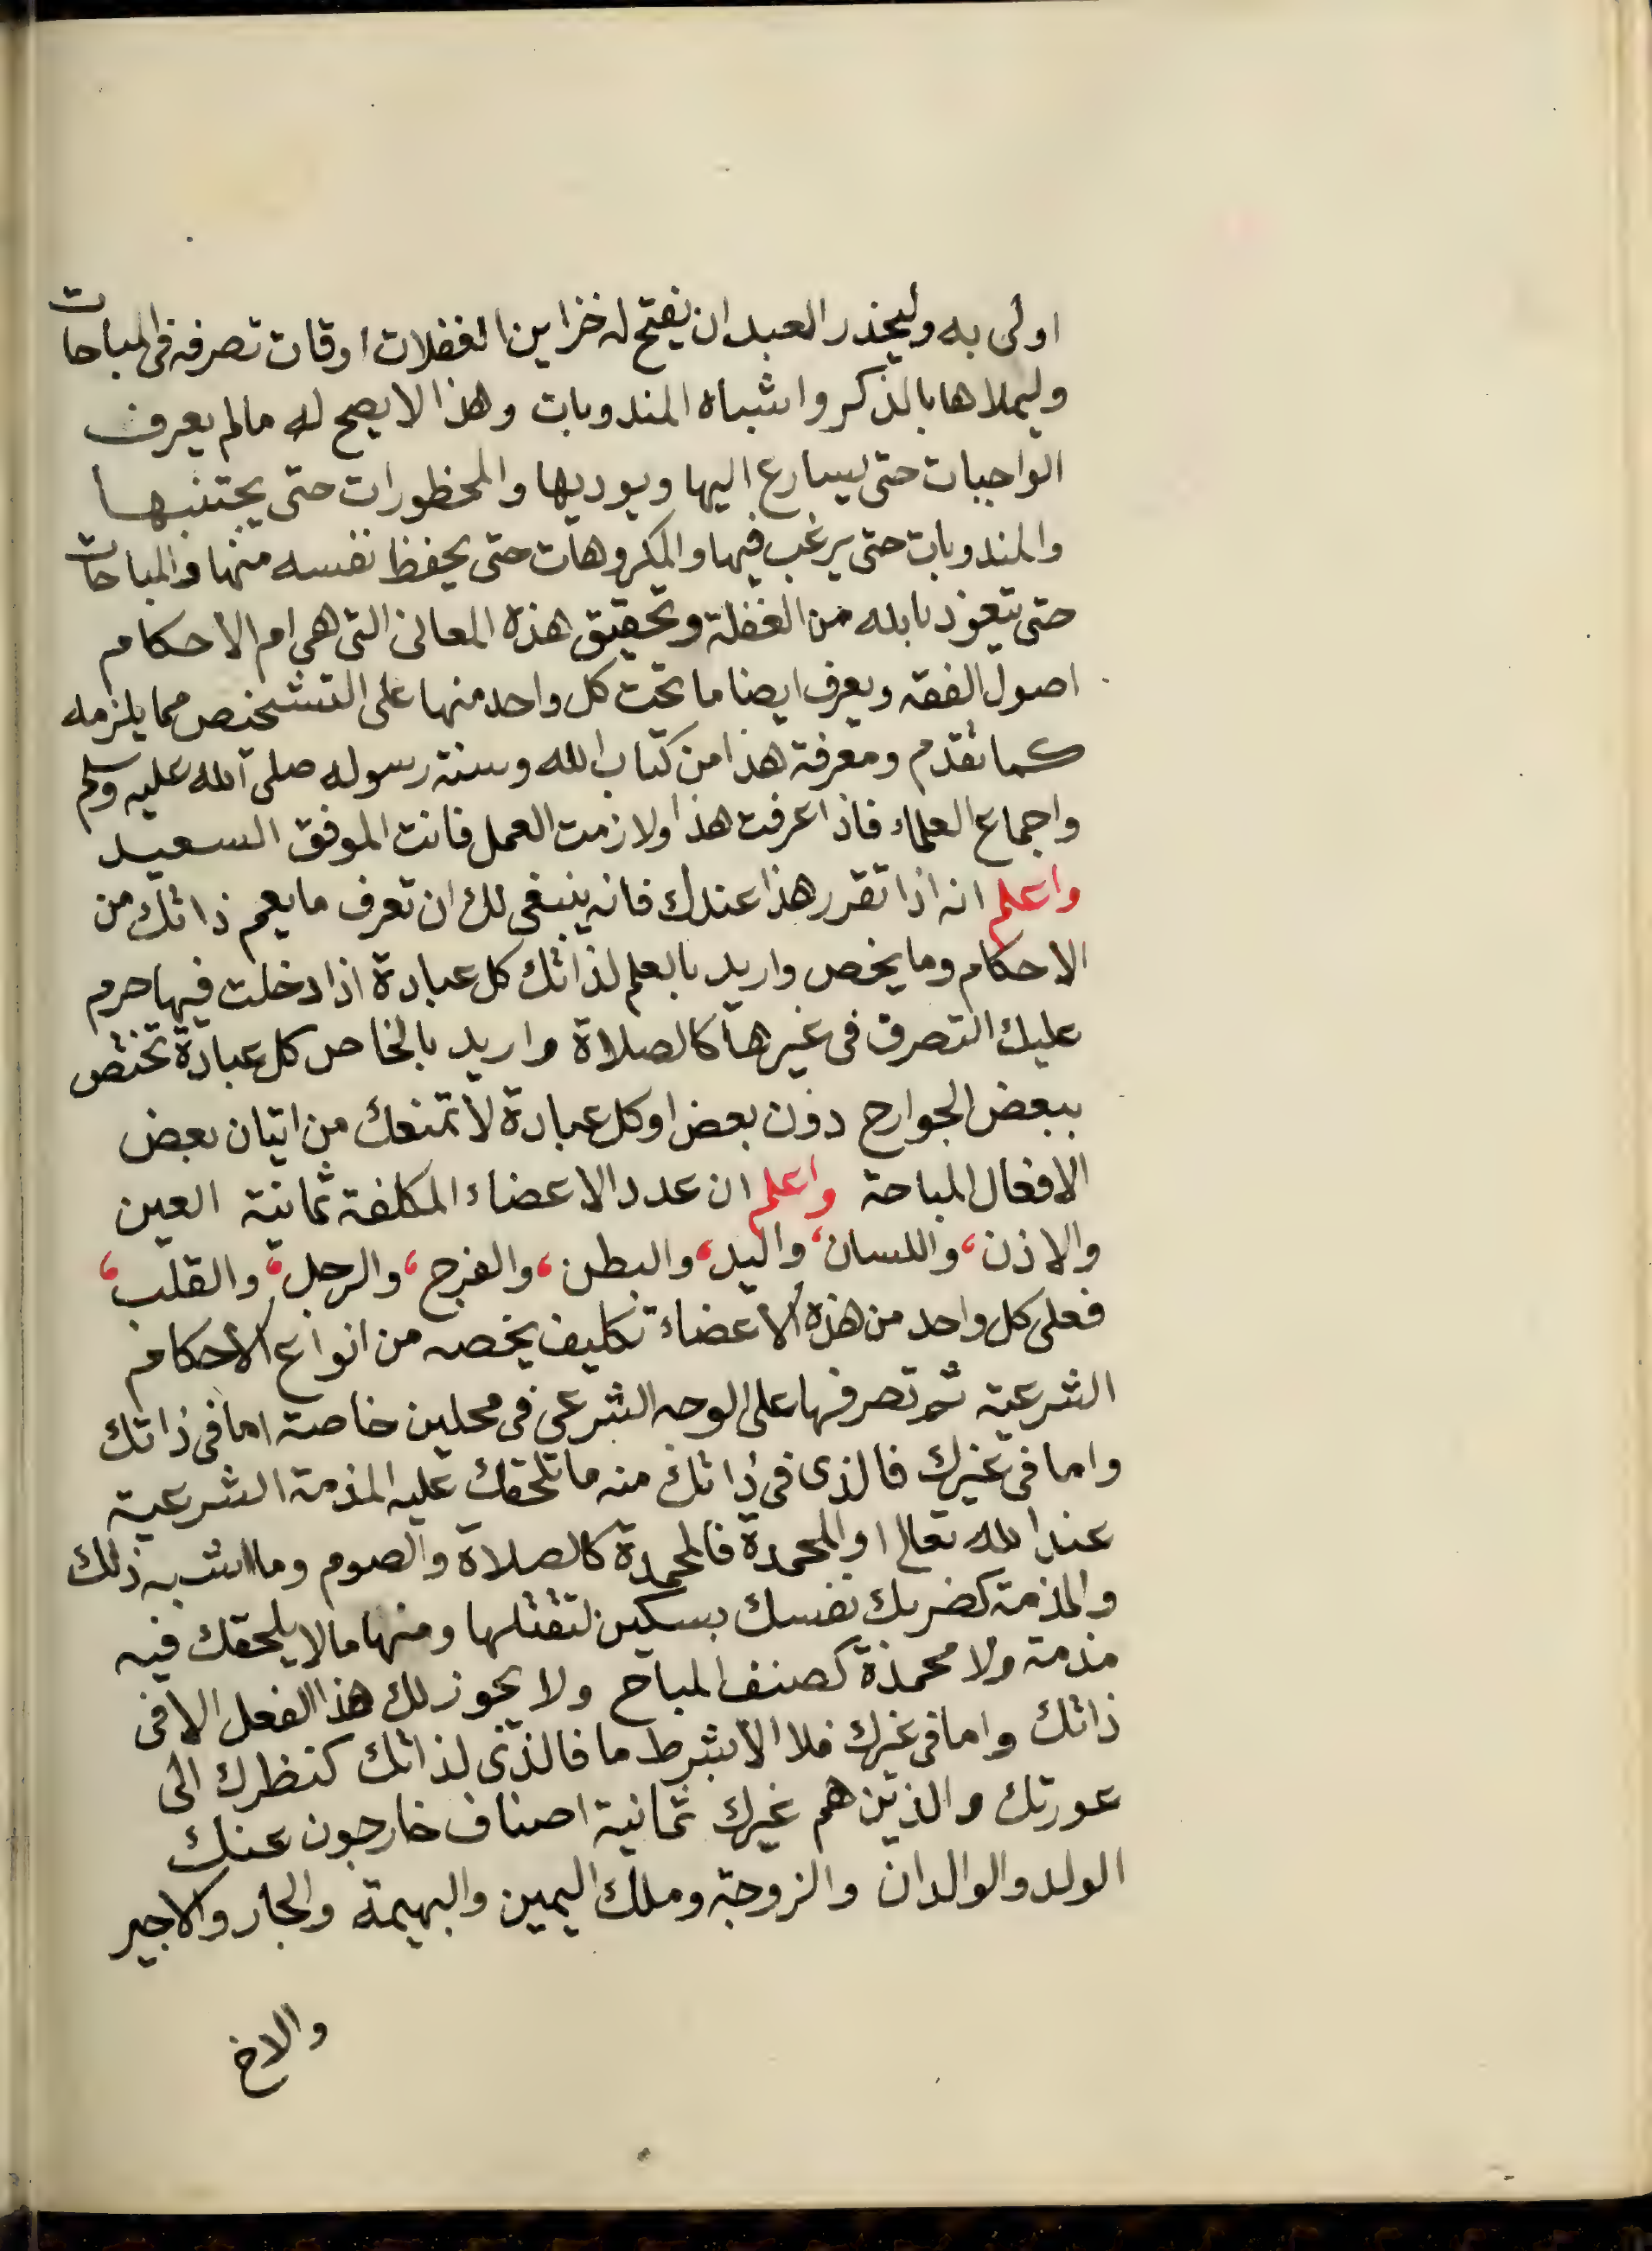 اولى به وليحذر العبد ان يفتح له خزاين الغفلات اوقات تصرفه في المباحات
وليملاها بالذكر واشباه المندوبات وهذا لا يصح له مالم يعرف
الواجبات حتى يسارع اليها ويوديها والمحظورات حتى يجتنبها
والمندوبات حتى يرغب فيها والمكروهات حتى يحفظ نفسه منها والمباحات
حتى يتعوذ بالله من الغفلة وتحقيق هذه المعاني التي هي ام الاحكام
اصول الفقه ويعرف ايضا ما تحت كل واحد منها على التشخيص مما يلزمه
كما تقدم ومعرفة هذا من كتاب الله وسنة رسوله صلى الله عليه وسلم
واجماع العلماء فاذا عرفت هذا ولازمت العمل فانت الموفق السعيد
واعلم انه اذا تقرر هذا عندك فانه ينبغي لك ان تعرف ما يعم ذاتك من
الاحكام وما يخص واريد بالعلم لذاتك كل عبادة اذا دخلت فيها حرم
عليك التصرف في غيرها كالصلاة واريد بالخاص كل عبادة تختص
ببعض الجوارح دون بعض او كل عبادة لا تمنعك من اتيان بعض
الافعال المباحة واعلم ان عدد الاعضاء المكلفة ثمانية العين
والاذن، واللسان، واليد، والبطن، والفرج، والرجل، والقلب،
فعلى كل واحد من هذه الاعضاء تكليف يخصه من انواع الاحكام
الشرعية ثم تصرفها على الوجه الشرعي في محلين خاصة اما في ذاتك
واما في غيرك فالذي في ذاتك منه ما تلحقك عليه المذمة الشرعية
عند الله تعالى او المحمدة فالمحمدة كالصلاة والصوم وما اشبه ذلك
والمذمة كضربك نفسك بسكين لتقتلها ومنها مالا يلحقك فيه
مذمة ولا محمدة كصنف المباح ولا يجوز لك هذا الفعل الا في
ذاتك واما في غيرك فلا الا بشرط ما فالذي لذاتك كنظرك الى
عورتك والذين هم غيرك ثمانية اصناف خارجون عنك
الولد والوالدان والزوجة وملك اليمين والبهيمة والجار والاجير
والاخ